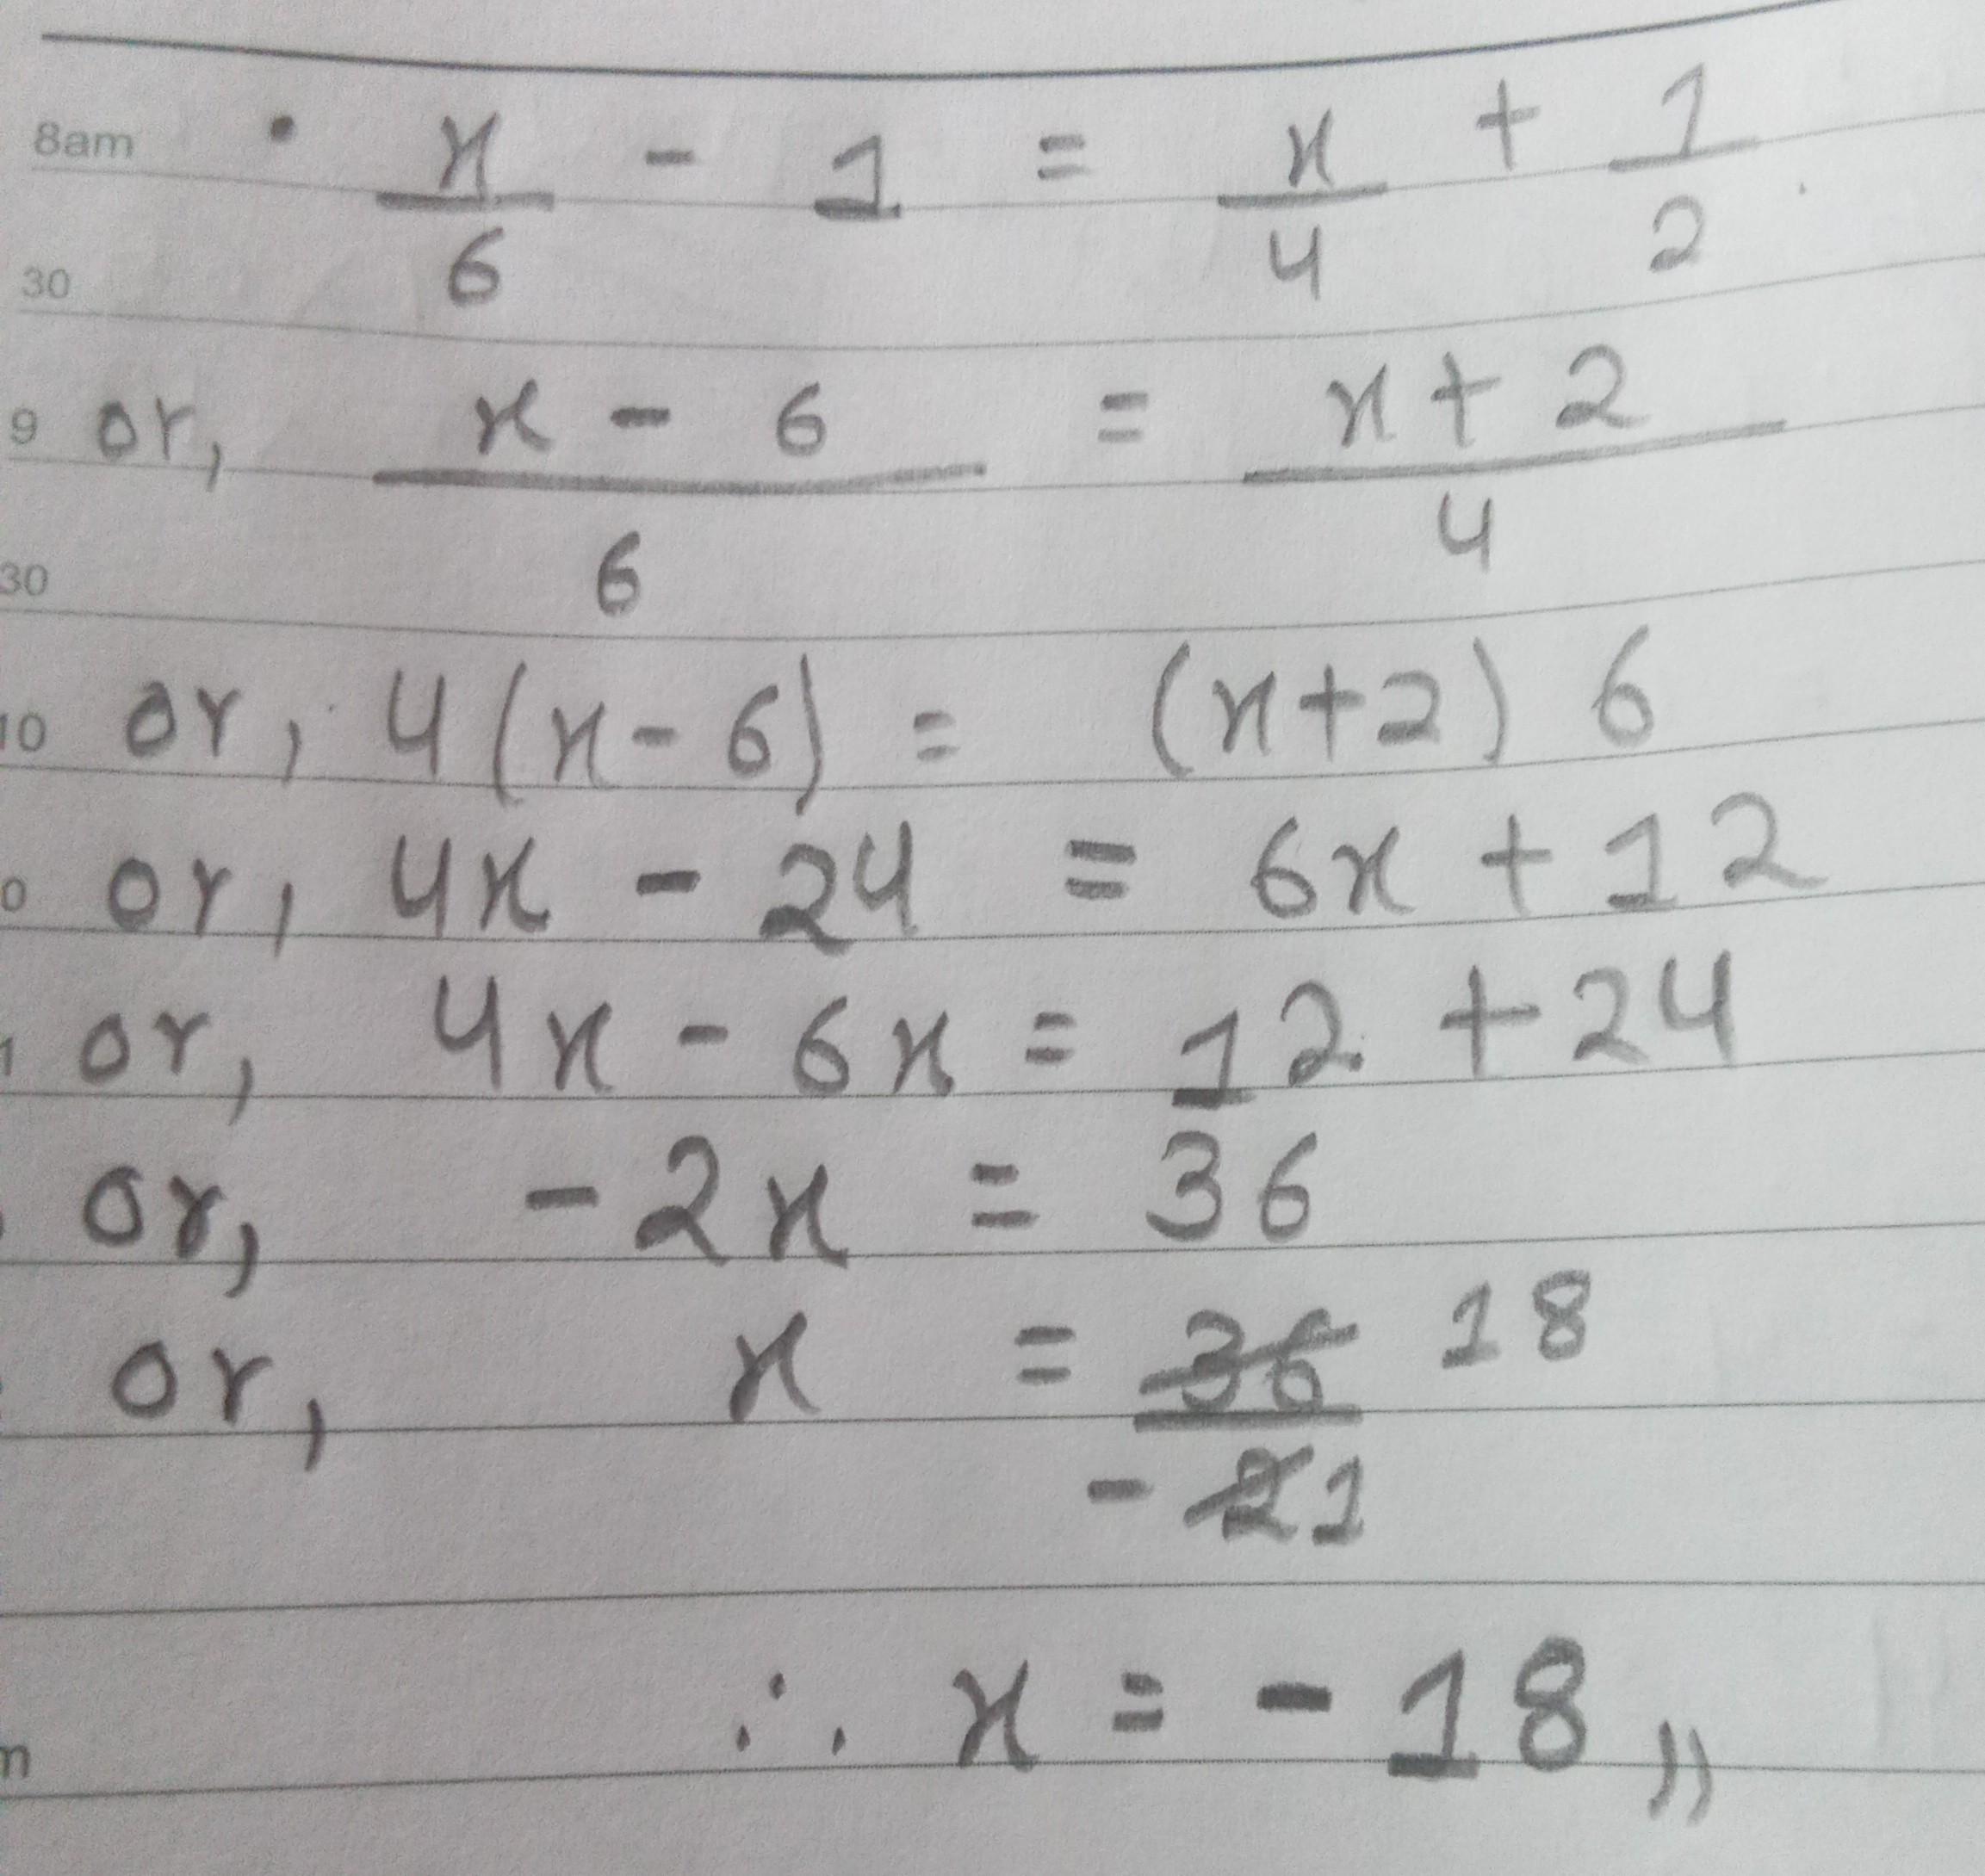 8am • x/6 - 1 = x/4 + 1/2
30
9 or, (x - 6)/6 = (x + 2)/4
30
10 or, 4(x - 6) = (x+2) 6
0 or, 4x - 24 = 6x + 12
1 or, 4x - 6x = 12 + 24
or, -2x = 36
or, x = 36/-2 18/1
∴ x = -18,,
m